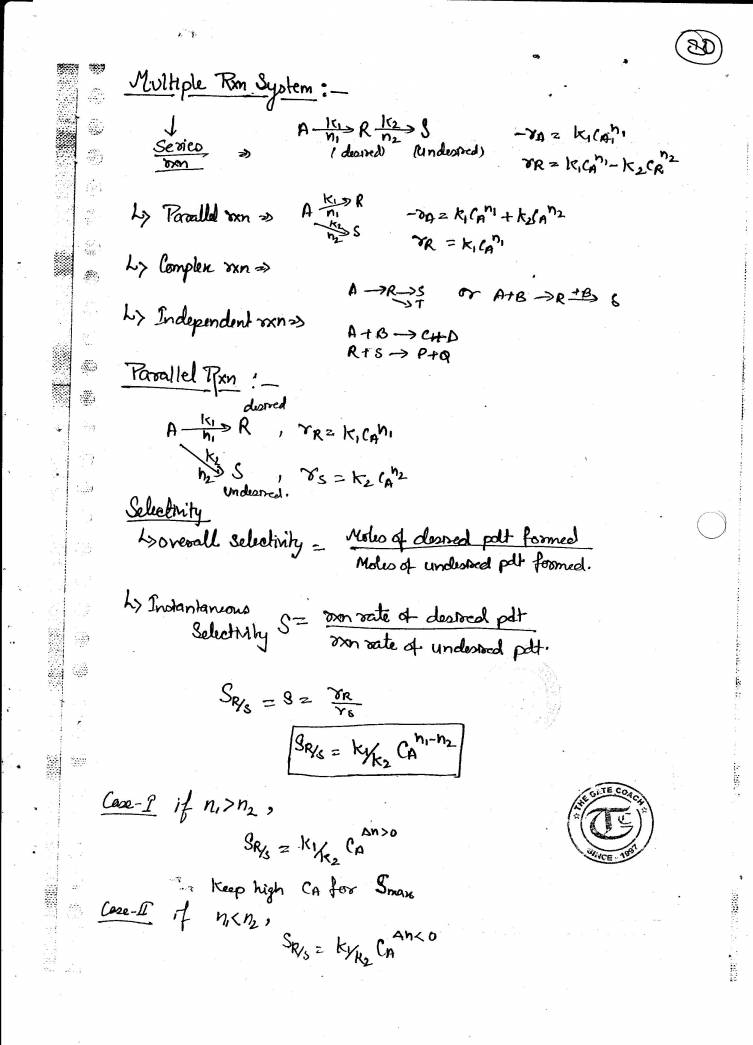 80
Multiple Rxn System :—
↓
Series rxn ⇒ A —k1/n1→ R —k2/n2→ S   -rA = k1CA^n1
(desired) (Undesired)   rR = k1CA^n1 - k2CR^n2
↳ Parallel rxn ⇒ A —k1/n1→ R   -rA = k1CA^n1 + k2CA^n2
—k2/n2→ S   rR = k1CA^n1
↳ Complex rxn ⇒
A → R → S   or   A+B → R —+B→ S
→ T
↳ Independent rxn ⇒
A + B → C+D
R + S → P+Q
Parallel Rxn :—
desired
A —k1/n1→ R , rR = k1CA^n1
—k2/n2→ S , rS = k2CA^n2
Undesired.
Selectivity
↳ overall selectivity = Moles of desired pdt formed
Moles of undesired pdt formed.
↳ Instantaneous Selectivity S = rxn rate of desired pdt
rxn rate of undesired pdt.
SR/S = S = rR/rS
SR/S = k1/k2 CA^n1-n2
Case-I if n1>n2 ,
SR/S = k1/k2 CA^Δn>0
∴ Keep high CA for Smax
Case-II if n1<n2 ,
SR/S = k1/k2 CA^Δn<0
THE GATE COACH
SINCE - 1997